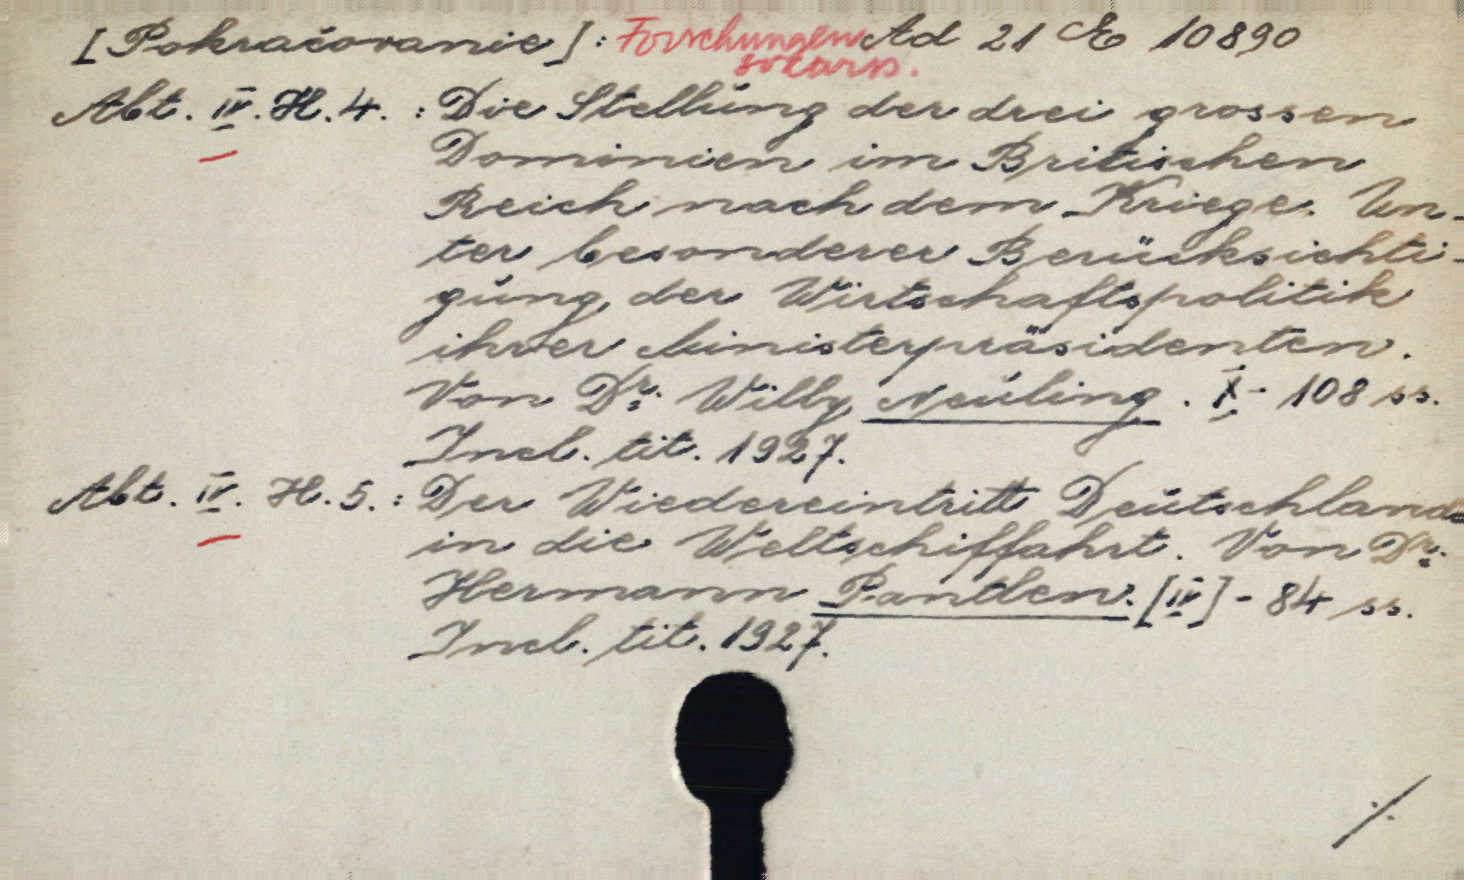 [Pokračovanie]: Forschungen Ad 21 E 10890
Abt. IV. H. 4. : Die Stellung der drei grossen
Dominien im Britischen
Reich nach dem Kriege. Un-
ter besonderer Berücksichti-
gung der Wirtschaftspolitik
ihrer Ministerpräsidenten.
Von Dr. Willy Neuling. X - 108 ss.
Incl. tit. 1927.
Abt. IV. H. 5. : Der Wiedereintritt Deutschlands
in die Weltschiffahrt. Von Dr.
Hermann Pantlen. [IV] - 84 ss.
Incl. tit. 1927.
./.